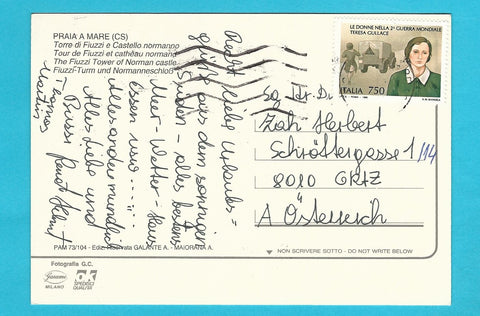 PRAIA A MARE (CS)
Torre di Fiuzzi e Castello normanno
Tour de Fiuzzi et cathêau normand
The Fiuzzi Tower of Norman castle
Fiuzzi-Turm und Normanneschloß
Recht liebe Urlaubs=
grüße aus dem sonnigen
Süden - alles bestens
Meer - Wetter - Haus
Essen usw.....
Alles andere mündlich
Alles Liebe und
Bussi Renate Helmut
Thomas
Martin
LE DONNE NELLA 2ª GUERRA MONDIALE
TERESA GULLACE
ITALIA 750
Zach Herbert
Schröttergasse 1/14
8010 GRAZ
A Österreich
PAM 73/104 - Ediz. Riservata GALANTE A. - MAIORANA A.
NON SCRIVERE SOTTO - DO NOT WRITE BELOW
Fotografia G.C.
MILANO